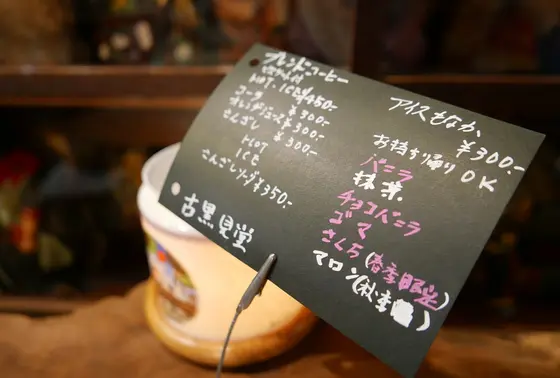 ブレンドコーヒー
HOT・ICE ¥450.-
コーラ ¥300.-
オレンジジュース ¥300.-
さんざし ¥300.-
HOT
ICE
さんざしソーダ ¥350.-
古黒見堂
アイスもなか
¥300.-
お持ち帰りOK
バニラ
抹茶
チョコバニラ
ゴマ
さくら(春季限定)
マロン(秋季